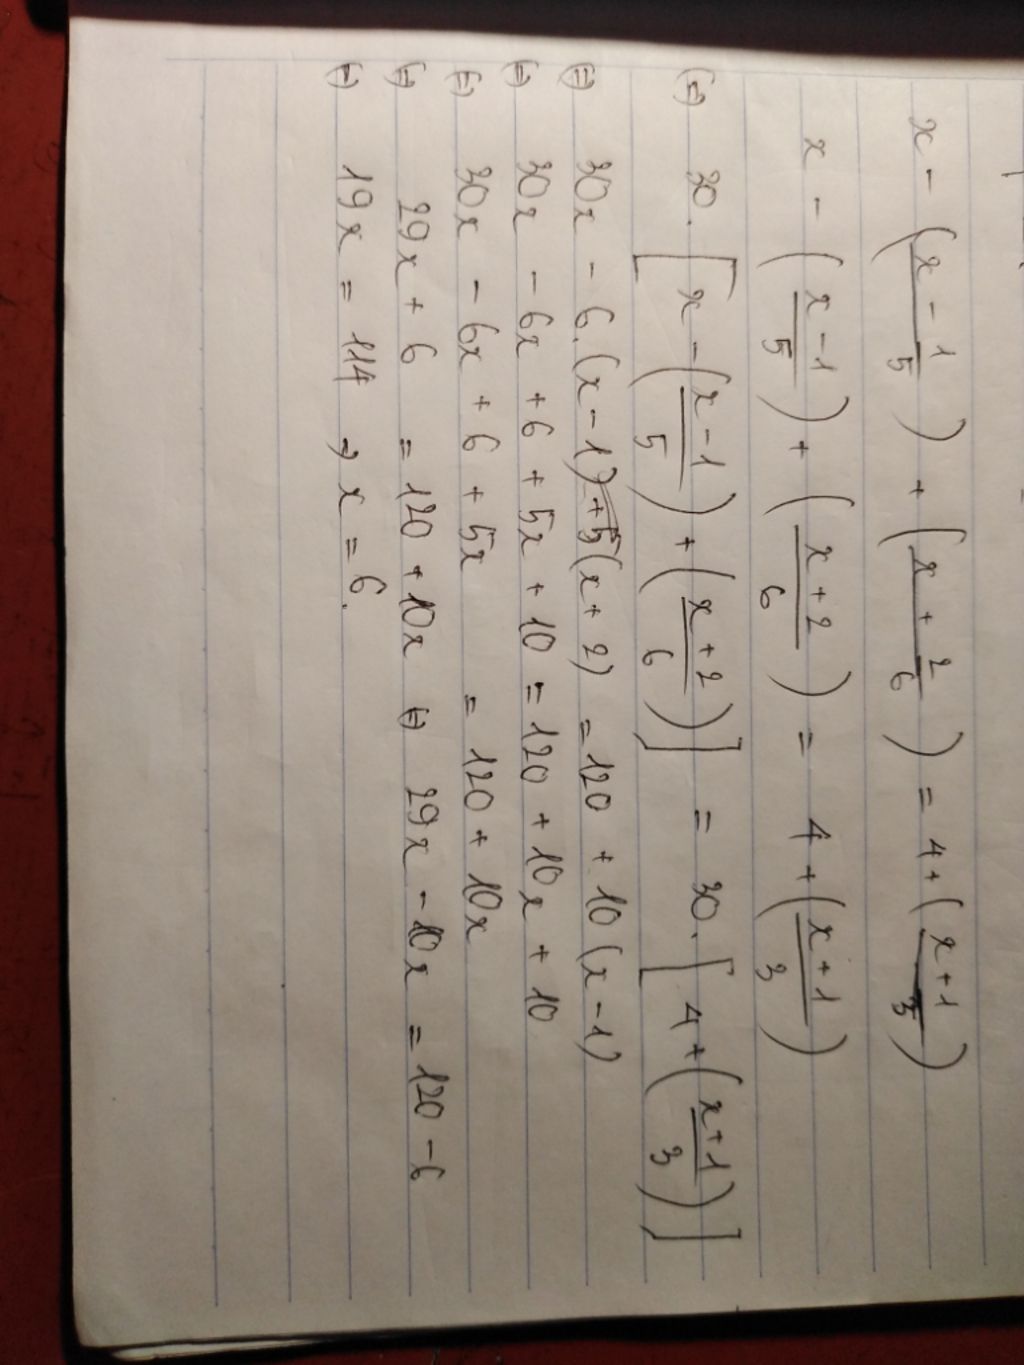 x - (x - 1/5) + (x + 2/6) = 4 + (x + 1/3)
x - (x - 1/5) + (x + 2/6) = 4 + (x + 1/3)
(=) 30. [x - (x - 1/5) + (x + 2/6)] = 30. [4 + (x + 1/3)]
(=) 30x - 6.(x - 1) + 5(x + 2) = 120 + 10(x - 1)
(=) 30x - 6x + 6 + 5x + 10 = 120 + 10x + 10
(=) 30x - 6x + 6 + 5x = 120 + 10x
(=) 29x + 6 = 120 + 10x (=) 29x - 10x = 120 - 6
(=) 19x = 114 ⇒ x = 6.